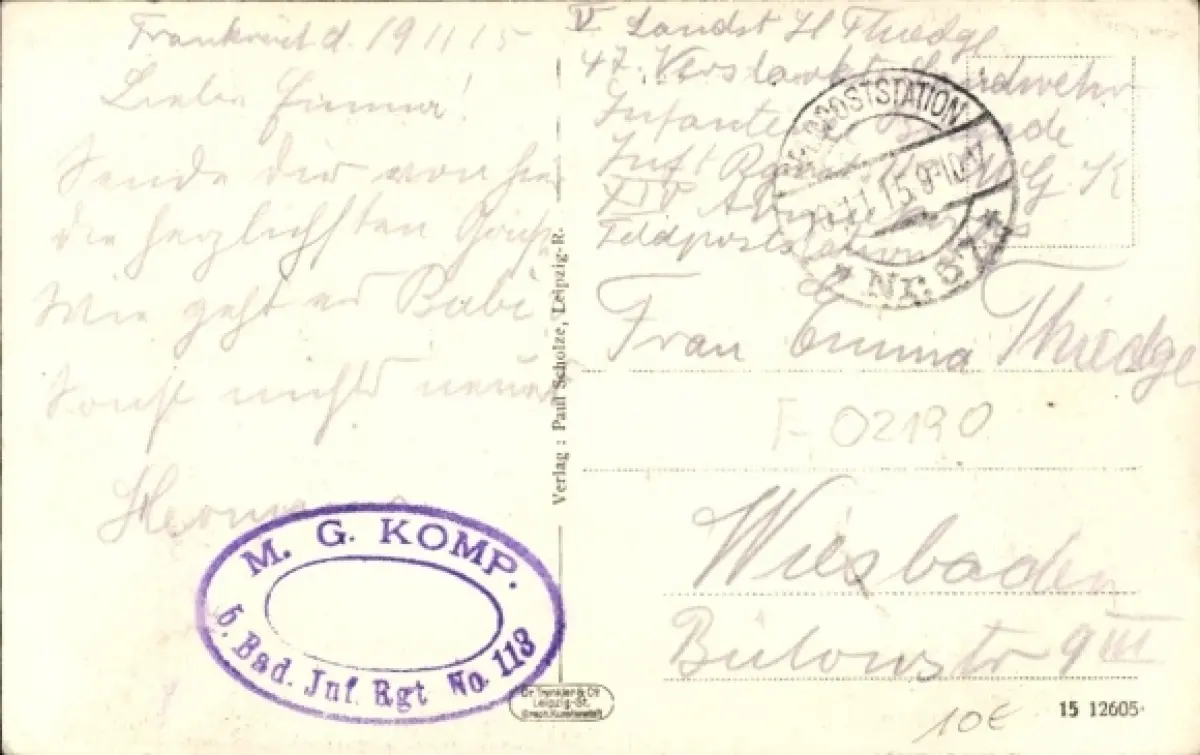 Frankreich d. 19 11 15
Liebe Emma!
Sende dir von hier
die herzlichsten Grüße
Wie geht es Babi
Sonst nichts neues
Hermann
M. G. KOMP.
5. Bad. Inf. Rgt No. 113
Verlag: Paul Scholze, Leipzig-R.
Dr Trenkler & Co
Leipzig-St.
Landst H Thiedge
47. Verstärkte Landwehr
Infanterie Brigade
Inf. M G K
XIV Armee
Feldpoststation
FELDPOSTSTATION
11 15 9-10
* Nr:
Frau Emma Thiedge
F 02190
Wiesbaden
Bülowstr 9 III
10€
15 12605